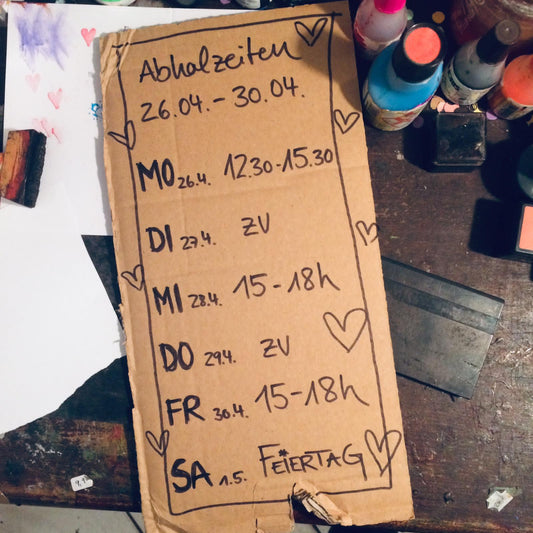 Abholzeiten
26.04. - 30.04.
MO 26.4. 12.30 - 15.30
DI 27.4. ZV
MI 28.4. 15 - 18h
DO 29.4. ZV
FR 30.4. 15 - 18h
SA 1.5. FEIERTAG